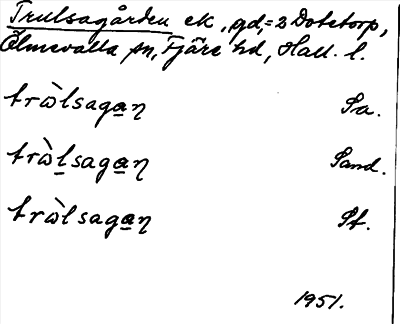 Trulsagården ek, gd, = 2 Dotetorp,
Ölmevalla sn, Fjäre hd, Hall. l.
trὼlsagan̥ Sa.
trὼlsagan̥ Sand.
trὼlsagan̥ St.
1951.